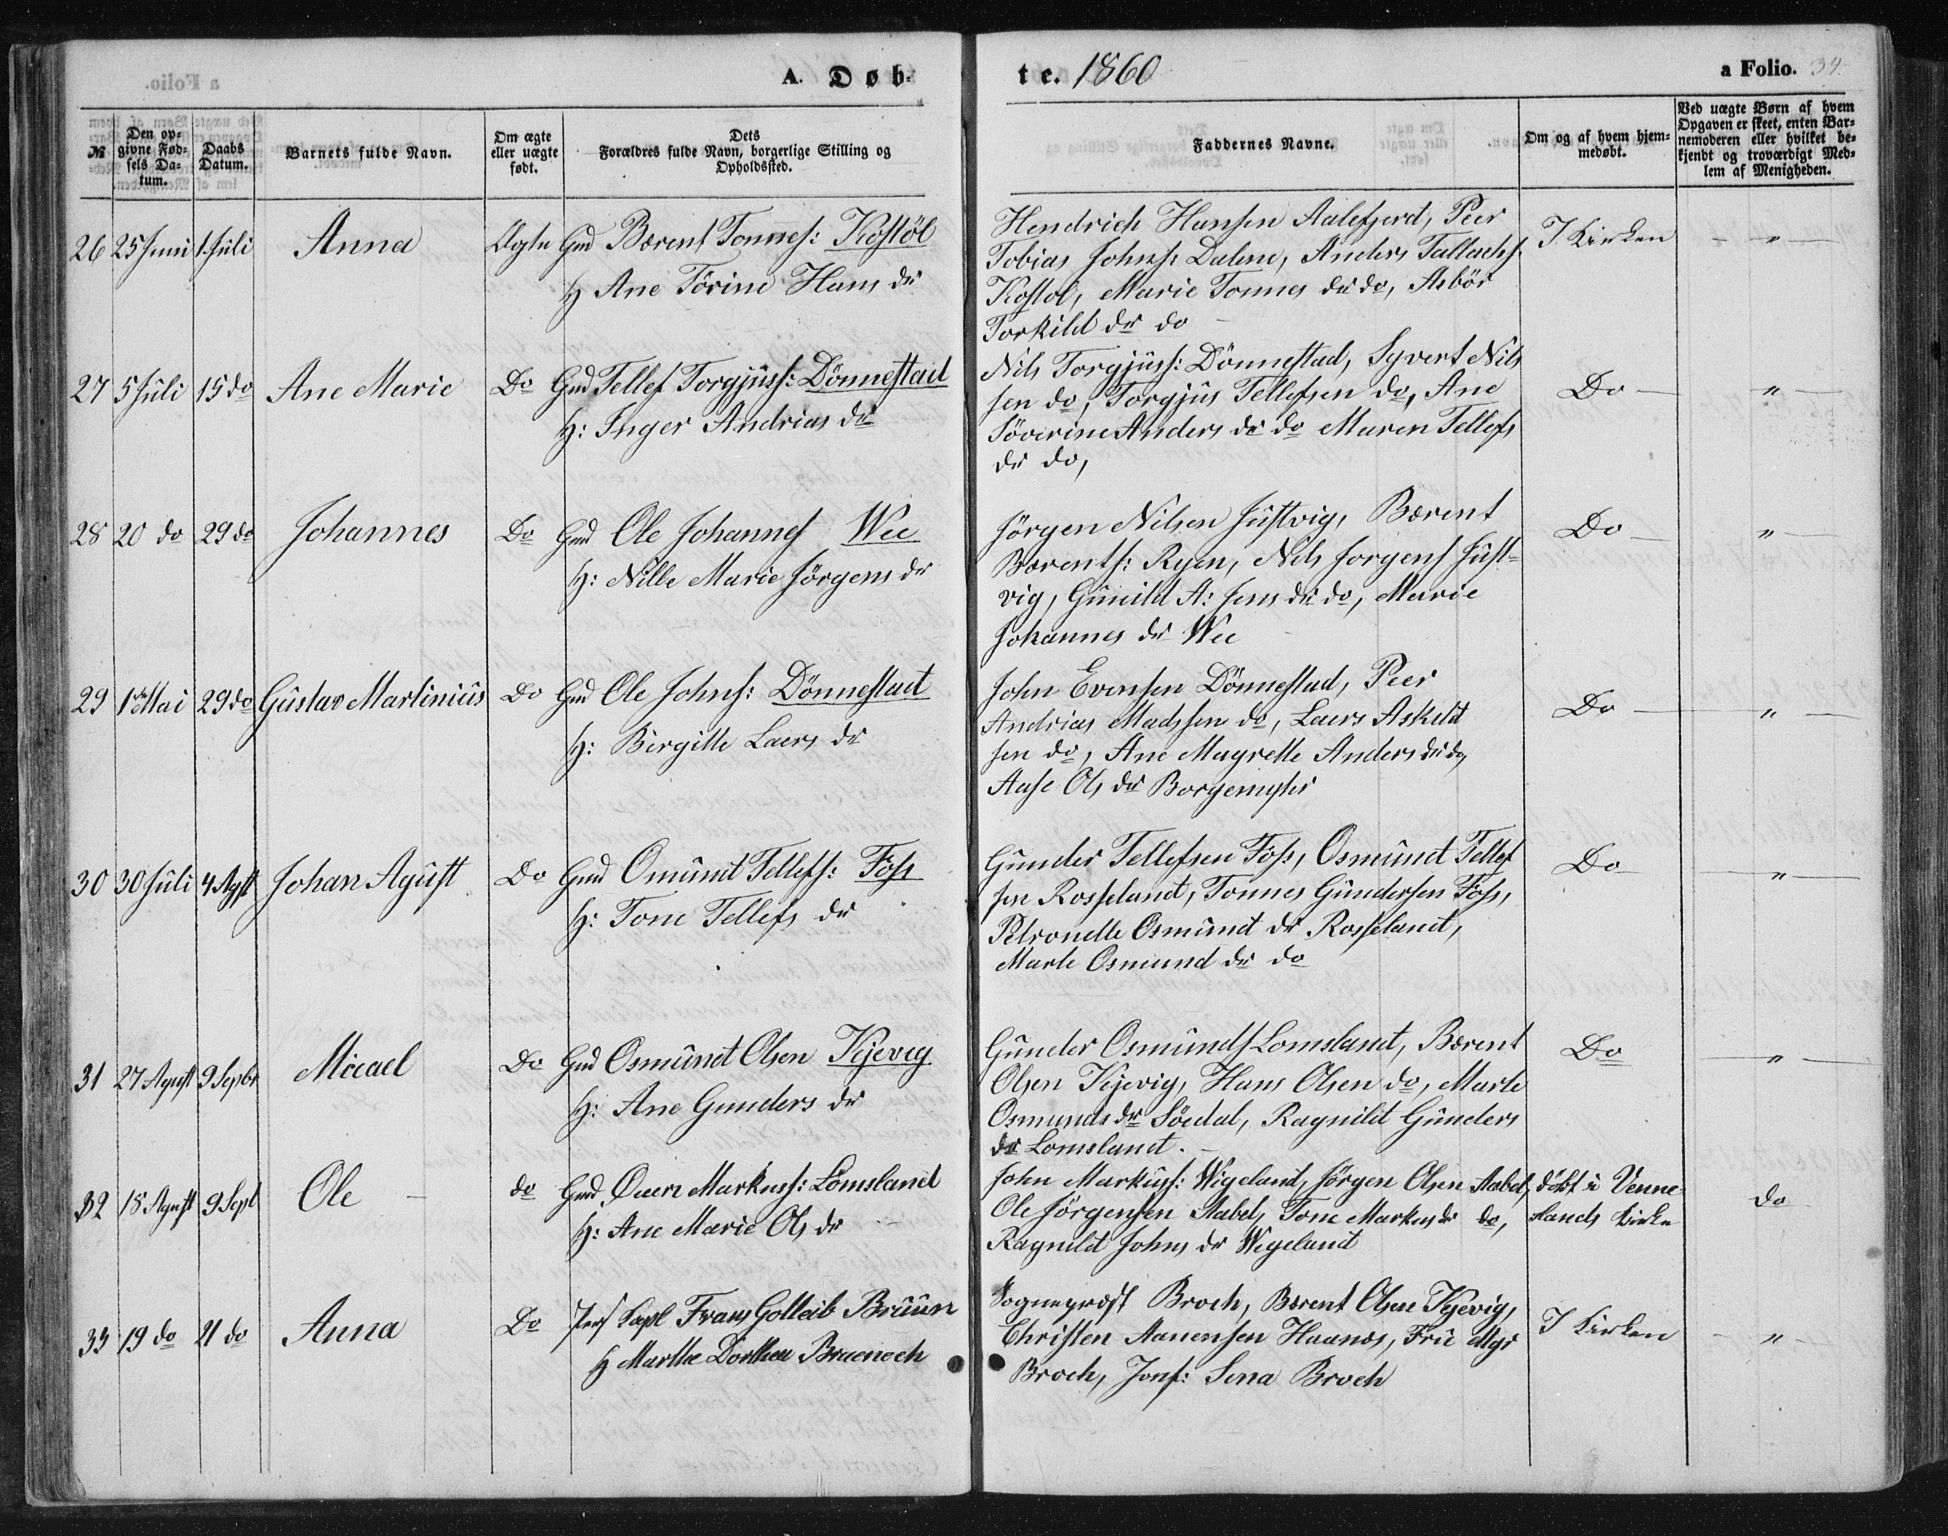 a Folio.
A. Døb-
te. 1860
a Folio. 34.
№
Den op-
givne Fød-
sels Da-
tum.
Daabs
Datum.
Barnets fulde Navn.
Om ægte
eller uægte
født.
Dets
Forældres fulde Navn, borgerlige Stilling og
Opholdssted.
Faddernes Navne.
Om og af hvem hjem-
medøbt.
Ved uægte Børn af hvem
Opgaven er skeet, enten Bar-
nemoderen eller hvilket be-
kjendt og troværdigt Med-
lem af Menigheden.
26 25 Juni 1. Juli Anna Ægte Gmd Bærent Tonnes: Kostøl
H Ane Törine Hans dr
Hendrich Hansen Aalefjerd, Peer
Tobias Johns: Dalene, Anders Tallachs:
Kostøl, Marie Tonnes dr do, Asbör
Torkild dr do
I Kirken - " -
27 5 Juli 15 do Ane Marie Do Gmd Tellef Torgjuss: Dönnestad
H: Inger Andrias dr
Nils Torgjüss: Dönnestad, Syvert Nils
sen do, Torgjus Tellefsen do, Ane
Söverine Anders dr do Maren Tellefs
dr do,
Do - " -
28 20 do 29 do Johannes Do Gmd Ole Johannes Wee
H: Nille Marie Jörgens dr
Jörgen Nilsen Justvig, Bærent
Bærents: Ryen, Nils Jorgens Just-
vig, Gunild A: Jens dr do, Marie
Johannes dr Wee
Do - "
29 1de Mai 29 do Gustav Martinius Do Gmd Ole Johns: Dönnestad
H: Birgitte Laers dr
John Evensen Dönnestad, Peer
Andrias Madssen do, Laers Askild
sen do, Ane Magrette Anders dr do,
Aase Ols dr Borgemyhr
Do - " -
30 30 Juli 4 Agst Johan Agust Do Gmd Omünd Tellefs: Foss
H: Tone Tellefs dr
Gunder Tellefsen Foss, Osmünd Tellef
sen Rosseland, Tonnes Gundersen Foss,
Petronelle Osmünd dr Rosseland,
Marte Osmund dr do
Do - " -
31 27 Agust 9 Sepbr Micael Do Gmd Osmünd Olsen Kjevig
H: Ane Gunders dr
Gunder Osmunds Lomsland, Bærent
Olsen Kjevig, Hans Olsen do, Marte
Osmunds dr Söedal, Ragnild Günders
dr Lomsland.
Do - " -
32 18 Agust 9 Sept Ole - do Gmd Ouen Markuss: Lomsland
H: Ane Marie Ols dr
John Markuss: Wigeland, Jörgen Olsen Aabel,
Ole Jörgensen Aabel, Tone Markus dr do,
Ragnild Johns dr Wigeland
döbt i Venne
slands Kirke
do
33 19 do 21 do Anna Do Frans Gotleib Brüün
H Marthe Dorthea
Sogneprest Broch, Bærent Olsen Kjevig,
Christen Aanensen Haanes, Frue
Broch, Jomf: Sena Broch
I Kirken - " -